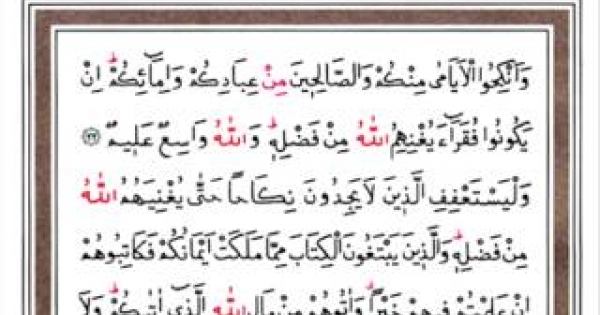 وَاَنْكِحُوا الْاَيَامٰى مِنْكُمْ وَالصَّالِحٖينَ مِنْ عِبَادِكُمْ وَاِمَٓائِكُمْؕ اِنْ
يَكُونُوا فُقَرَٓاءَ يُغْنِهِمُ اللّٰهُ مِنْ فَضْلِهٖؕ وَاللّٰهُ وَاسِعٌ عَلٖيمٌ ﴿٣٢﴾
وَلْيَسْتَعْفِفِ الَّذٖينَ لَا يَجِدُونَ نِكَاحًا حَتّٰى يُغْنِيَهُمُ اللّٰهُ
مِنْ فَضْلِهٖؕ وَالَّذٖينَ يَبْتَغُونَ الْكِتَابَ مِمَّا مَلَكَتْ اَيْمَانُكُمْ فَكَاتِبُوهُمْ
اِنْ عَلِمْتُمْ فٖيهِمْ خَيْرًاۗ وَاٰتُوهُمْ مِنْ مَالِ اللّٰهِ الَّذٖٓي اٰتٰيكُمْؕ وَلَا